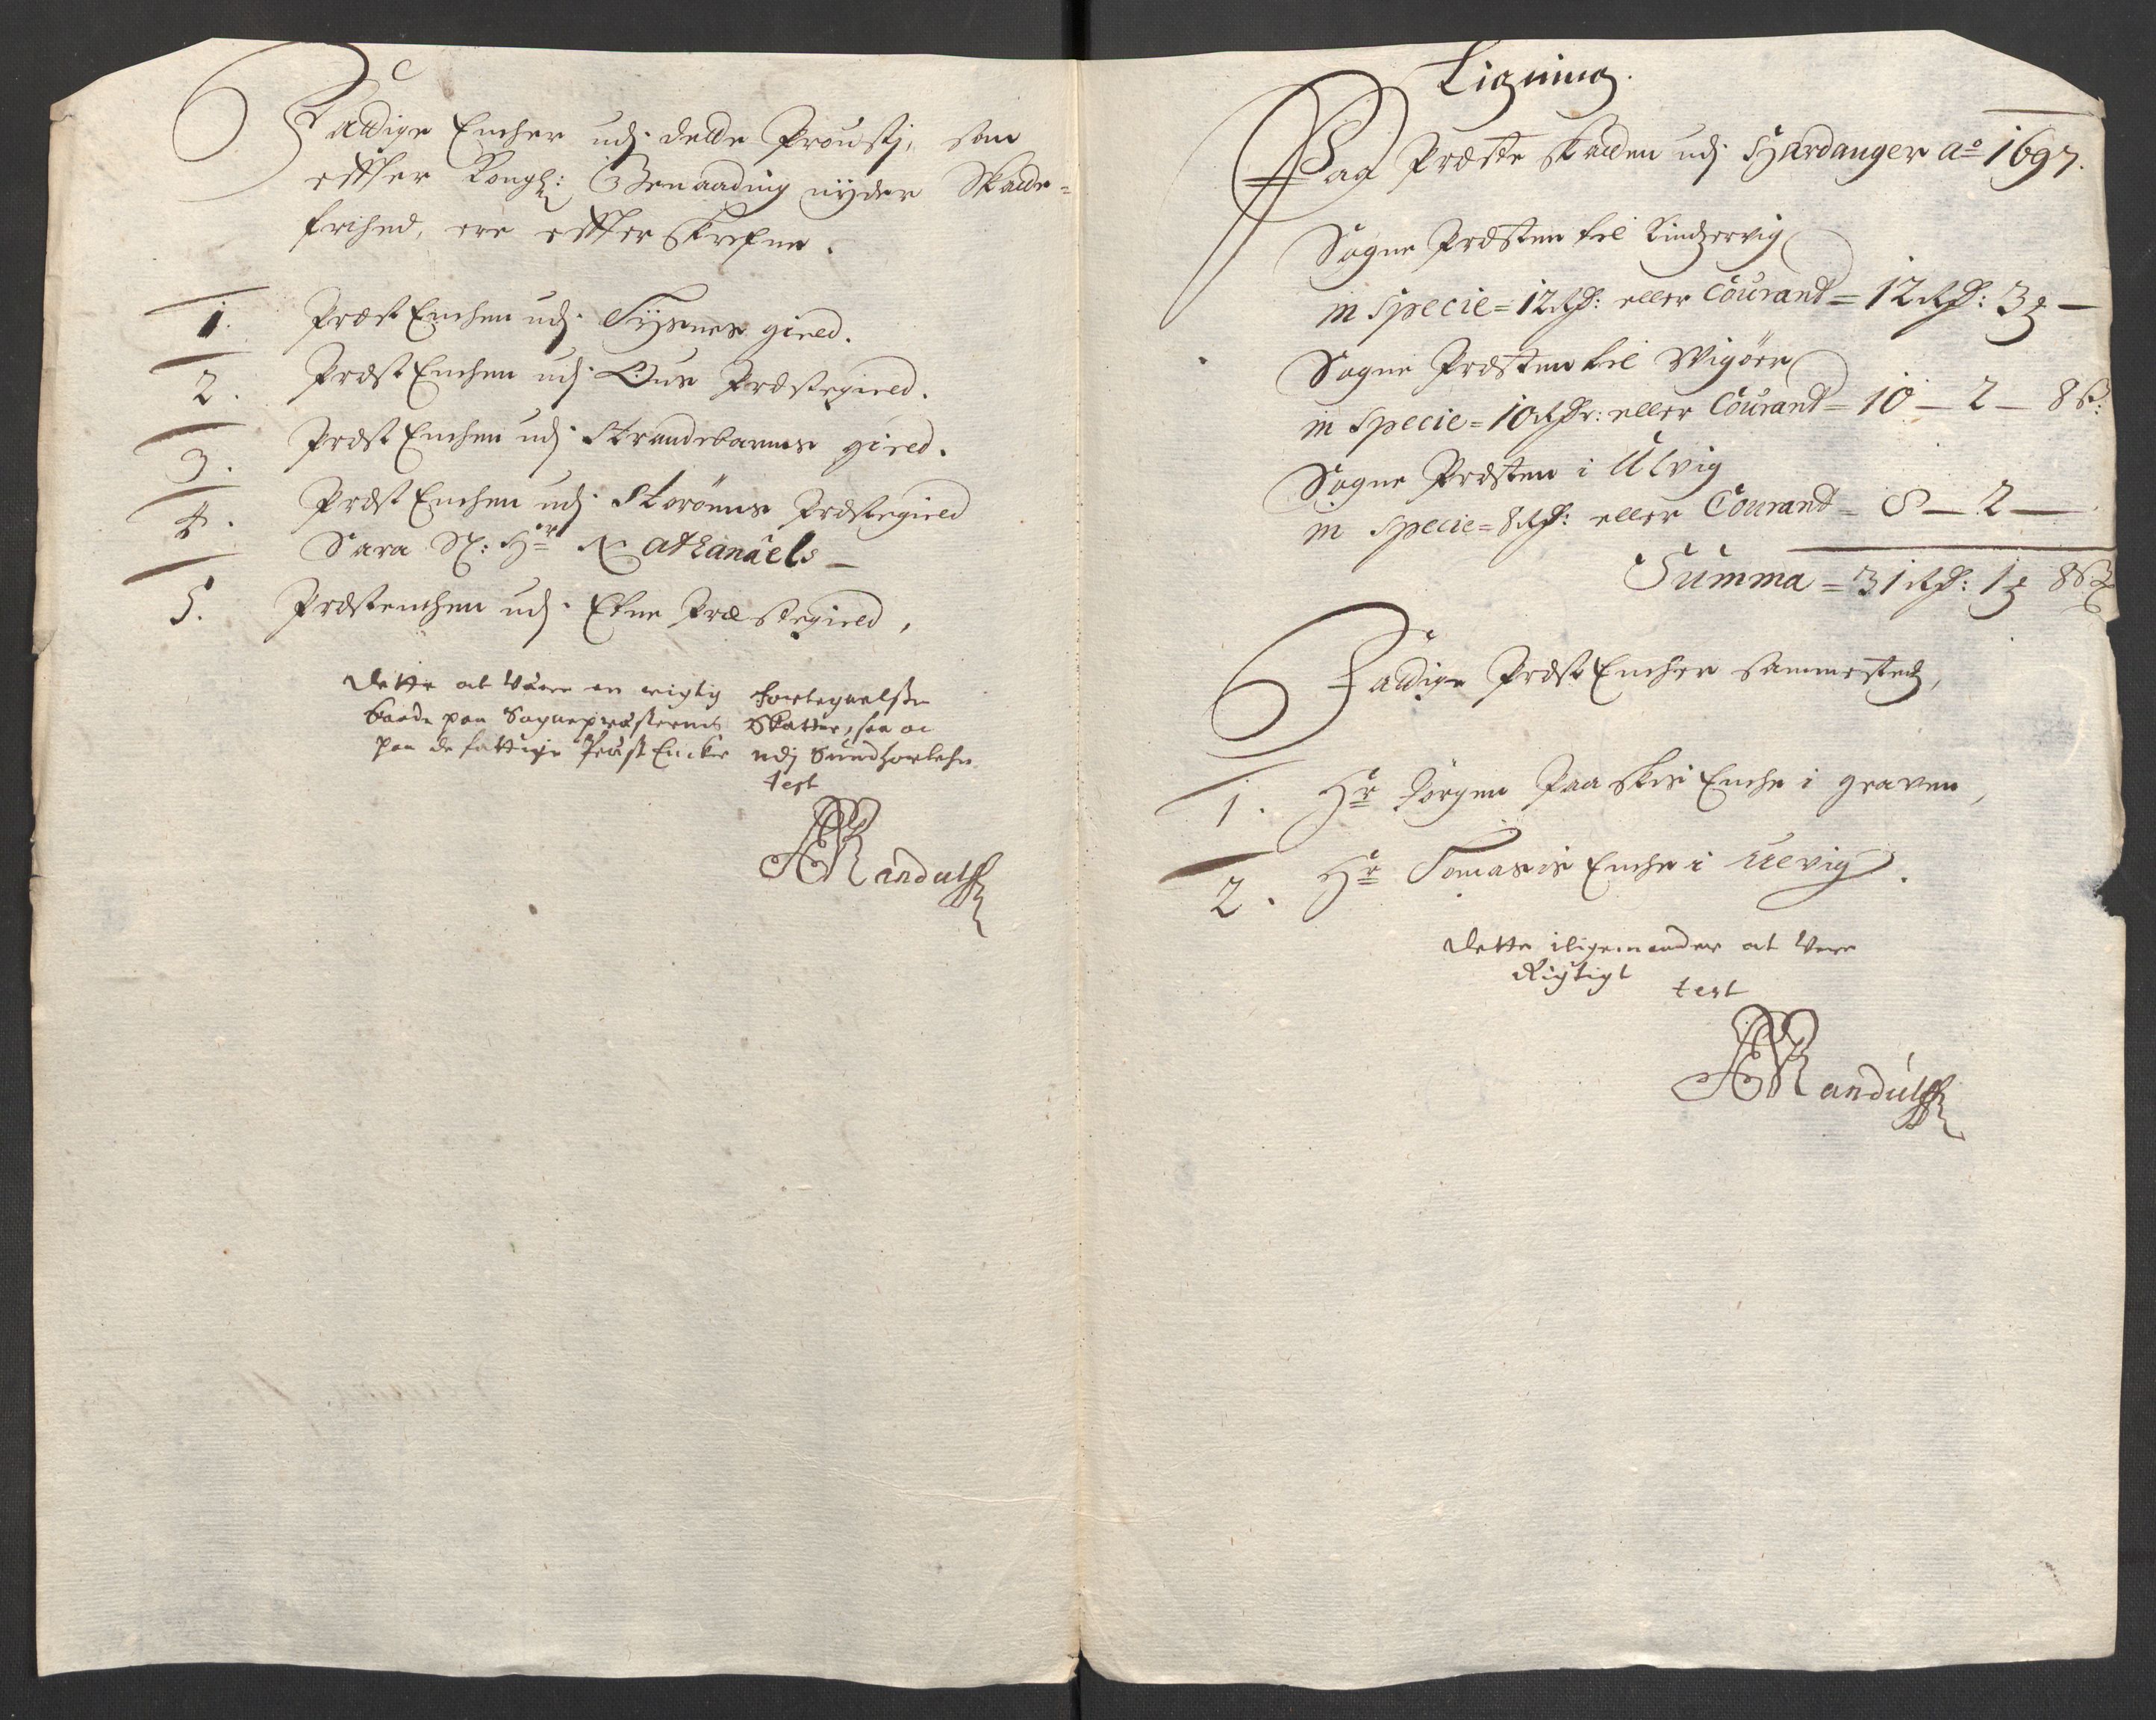 Fattige Encher udj dette Proustj, som
effter Kongl: Benaading nyder Skatte=
frihed, ere effterskrefne.
1. Præst Enchen udj Tysnes gield.
2. Præst Enchen udj Ous Præstegield.
3. Præst Enchen udj Strandebarms gield.
4. Præst Enchen udj Storöens Præstegield
Sara Sl: Hr Nathanaels
5. Præstenchen udj Etne Præstegield,
Dette at være en rigtig Fortegnelse
baade paa Sognepræsternis Skatter, saa oc
paa de fattige Præst Encker udj Sundhorlehn
test
ARandulff
Ligning.
Paa Præste Skatten udj Hardanger Ao 1697.
Sogne Præsten til Kindzervig
in Specie = 12 Rdr: eller Courant = 12 Rdr: 3 ʒ —
Sogne Præsten til Wigöer
in Specie = 10 Rdr: eller Courant = 10 — 2 — 8 ß:
Sogne Præsten i Ulvig
in Specie = 8 Rdr: eller Courant = 8 — 2 —
Summa = 31 Rdr: 1 ʒ 8 ß
Fattige Præst Encher sammested,
1. Hr Jörgen Paaskis Enche i graven,
2. Hr Tomasis Enche i Ulvig.
Dette iligemaader at være
Rigtigt
test
ARandulff